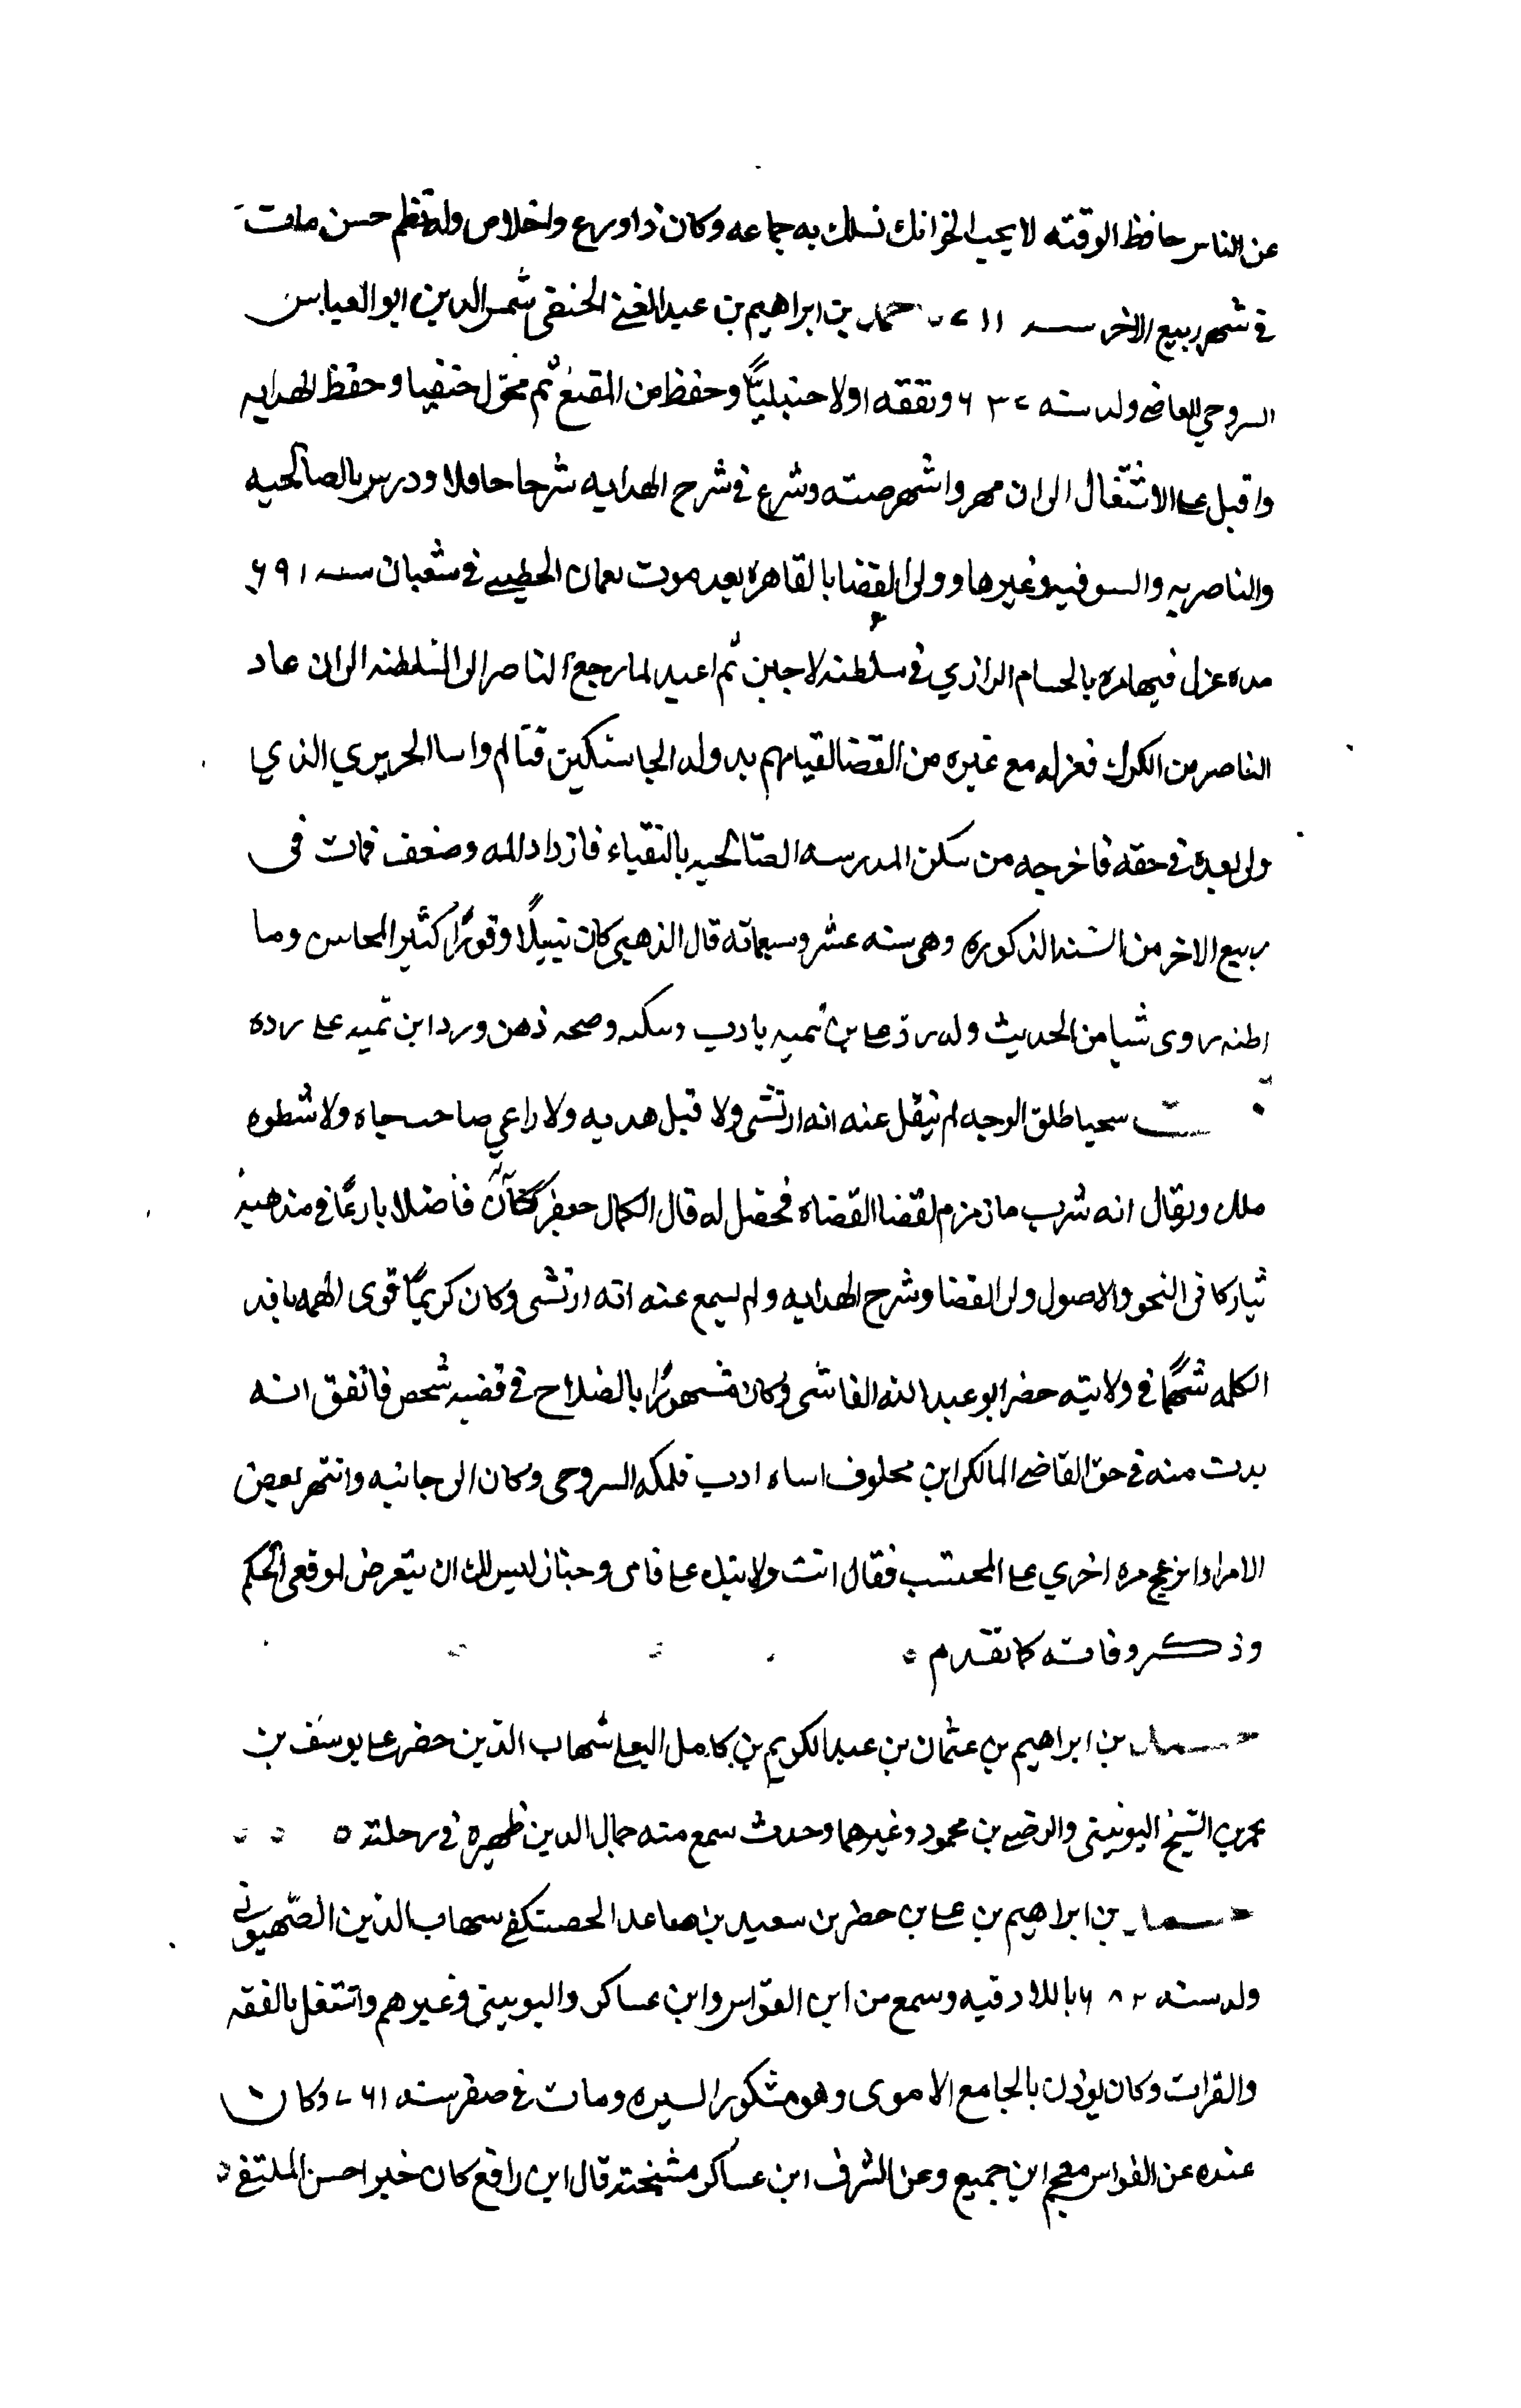 عن الناس حافظ الوقته لا يحب الخوانك تسلك به جماعه وكان ذا ورع واخلاص وله نظم حسن مات
في شهر ربيع الاخر سنه ٧١١ احمد بن ابراهيم بن عبد الغني الحنفي شمس الدين ابو العباس
السروجي القاضي ولد سنه ٦٣٧ وتفقه اولا حنبليًّا وحفظ من المقنع ثم تحوّل حنفيا وحفظ الهدايه
واقبل على الاشتغال الى ان مهر واشتهر صيته وشرع في شرح الهدايه شرحا حافلا ودرس بالصالحيه
والناصريه والسوفيه وغيرها وولى القضا بالقاهره بعد موت نعمان الخطيبي في شعبان سنه ٦٩١
مده عزل فيها مره بالحسام الرازي في سلطنه لاجين ثم اعيد لما رجع الناصر الى السلطنه الى ان عاد
الناصر من الكرك فعزله مع غيره من القضا لقيامهم بدوله الجاشنكير فتالم واسا الحريري الذي
ولى بعده في حقه فاخرجه من سكن المدرسه الصالحيه بالنقباء فازداد المه وضعف فمات فى
ربيع الاخر من السنه المذكوره وهى سنه عشر وسبعمائه قال الذهبي كان نبيلًا وقورًا كثير المحاسن وما
اظنه روى شيا من الحديث وله رد على بن تميه بادب وسكنه وصحه ذهن ورد ابن تميه على رده
سحيا طلق الوجه لم ينقل عنه انه ارتشى ولا قبل هديه ولا راعى صاحب جاه ولا سطوه
ملك ويقال انه شرب ما زمزم لقضا القضاه فحصل له قال الكمال جعفر كان فاضلا بارعًا في مذهبه
مشاركا في النحو والاصول ولى القضا وشرح الهدايه ولم يسمع عنه انه ارتشى وكان كريمًا قوى الهمه نافد
الكلمه شهمًا في ولايته حضر ابو عبد الله الفاسى وكان مشهورًا بالصلاح في قضيه شخص فاتفق انه
بدرت منه في حق القاضى المالكى ابن مخلوف اساه ادب فلكمه السروجى وكان الى جانبه وانتهر بعض
الامرا وانزعج مره اخري على المحتسب فقال انت ولايتك على فامى وخباز ليس لك ان تتعرض لموقعى الحكم
وذكر وفاته كما تقدم
احمد بن ابراهيم بن عثمان بن عبد الكريم بن كامل البعلى شهاب الدين حضر على يوسف بن
عمر بن الشيخ اليونينى والرضى بن محمود وغيرهما وحدث سمع منه جمال الدين ظهيره في رحلته
احمد بن ابراهيم بن على بن خضر بن سعيد بن صاعد الحصنكفى شهاب الدين الصهيوني
ولد سنه ٦٨٢ باللادقيه وسمع من ابن القوّاس وابن عساكر واليونينى وغيرهم واشتغل بالفقه
والقرات وكان يوذن بالجامع الاموى وهو مشكور السيره ومات في صفر سنه ٧٦١ وكان
عنده عن القواس معجم ابن جميع وعن الشرف ابن عساكر مشيخته قال ابن رافع كان خيرا حسن الملتقى